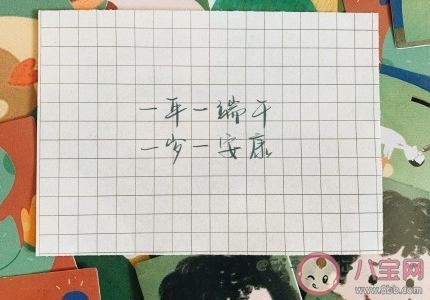 一年一端午
一岁一安康
八宝网
www.8bb.com